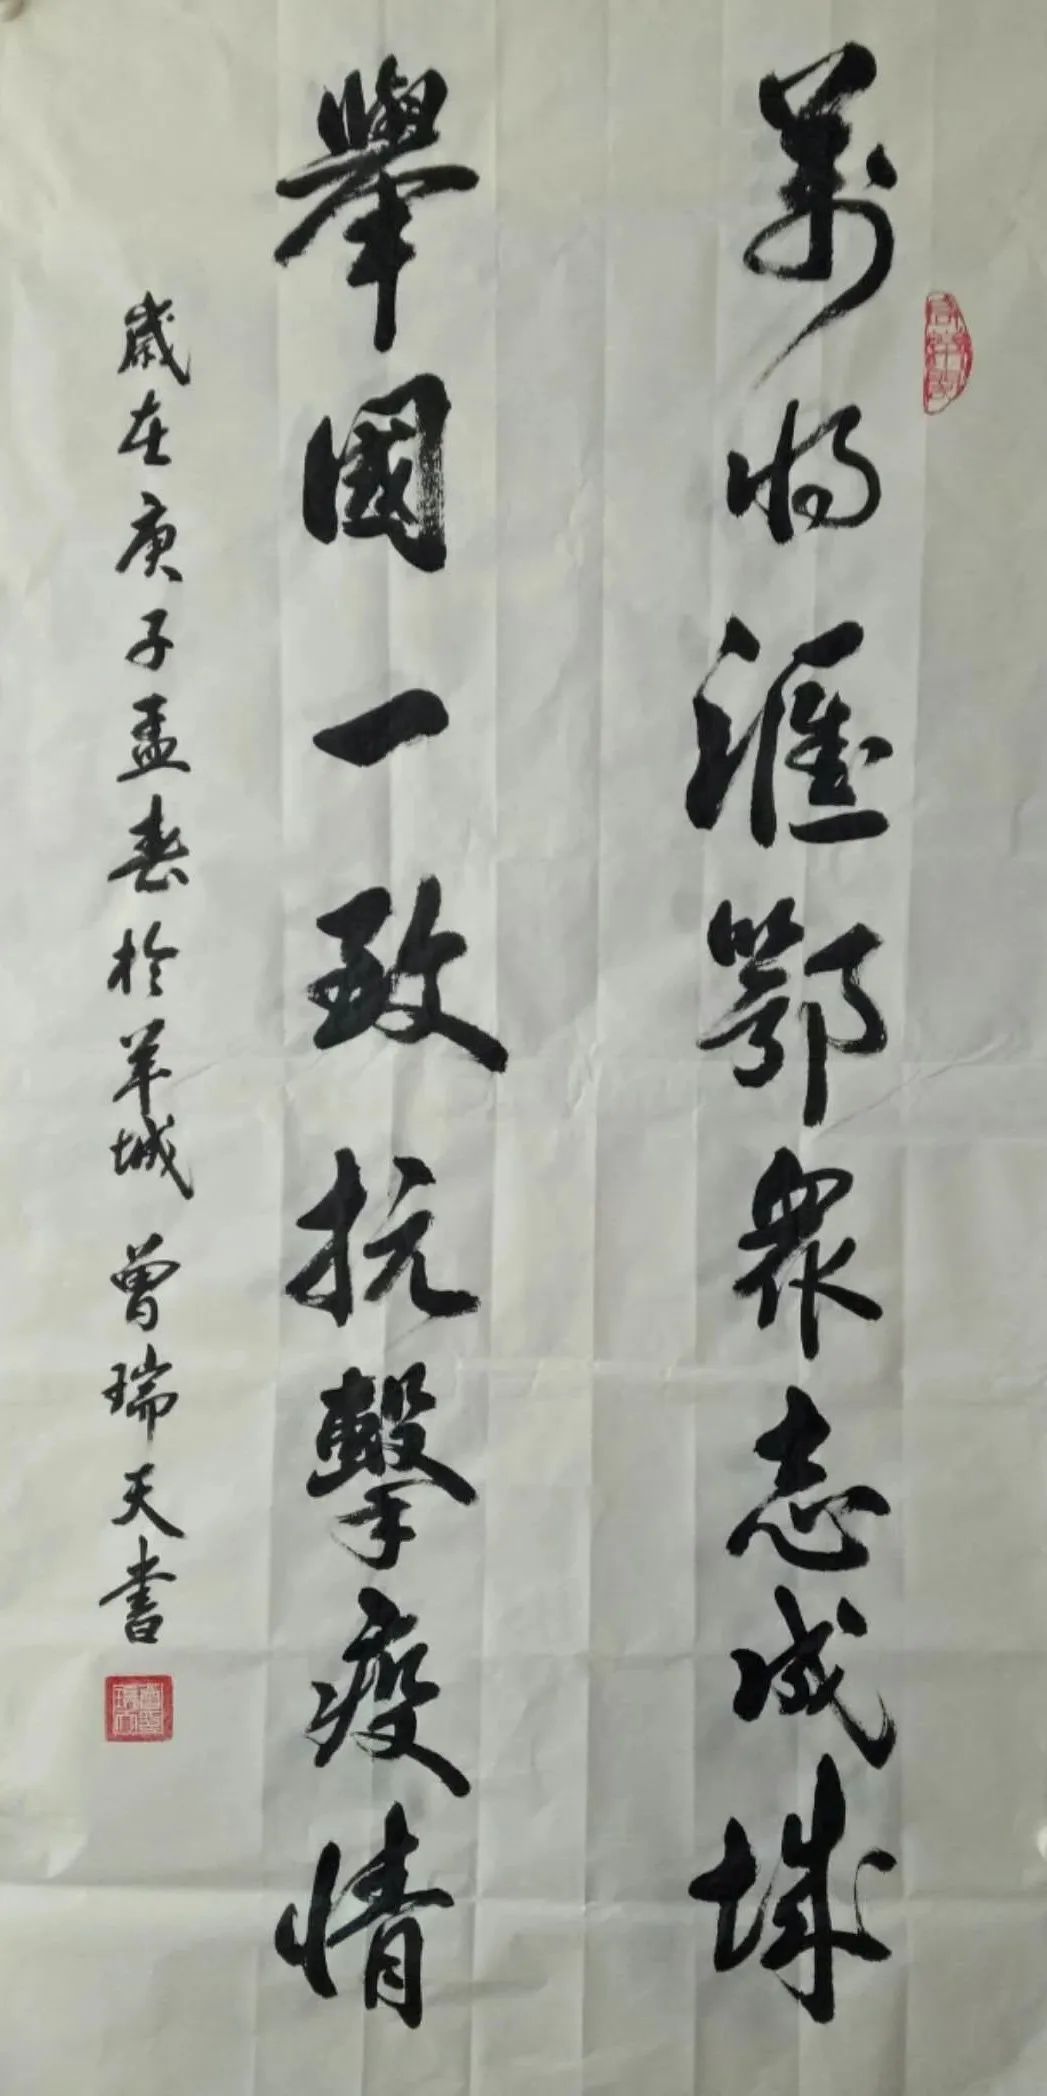 萬将滙鄂衆志成城
舉國一致抗擊疫情
歲在庚子孟春於羊城 曾瑞天書